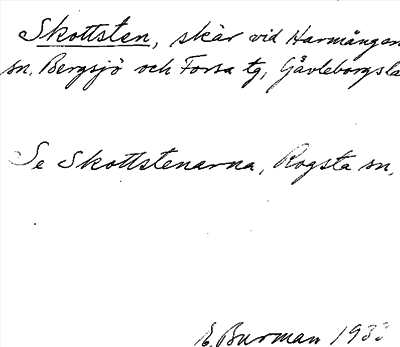 Skottsten, skär vid Harmångan
sn, Bergsjö och Forsa tg, Gävleborgsla
Se Skottstenarna, Rogsta sn,
E. Burman 193